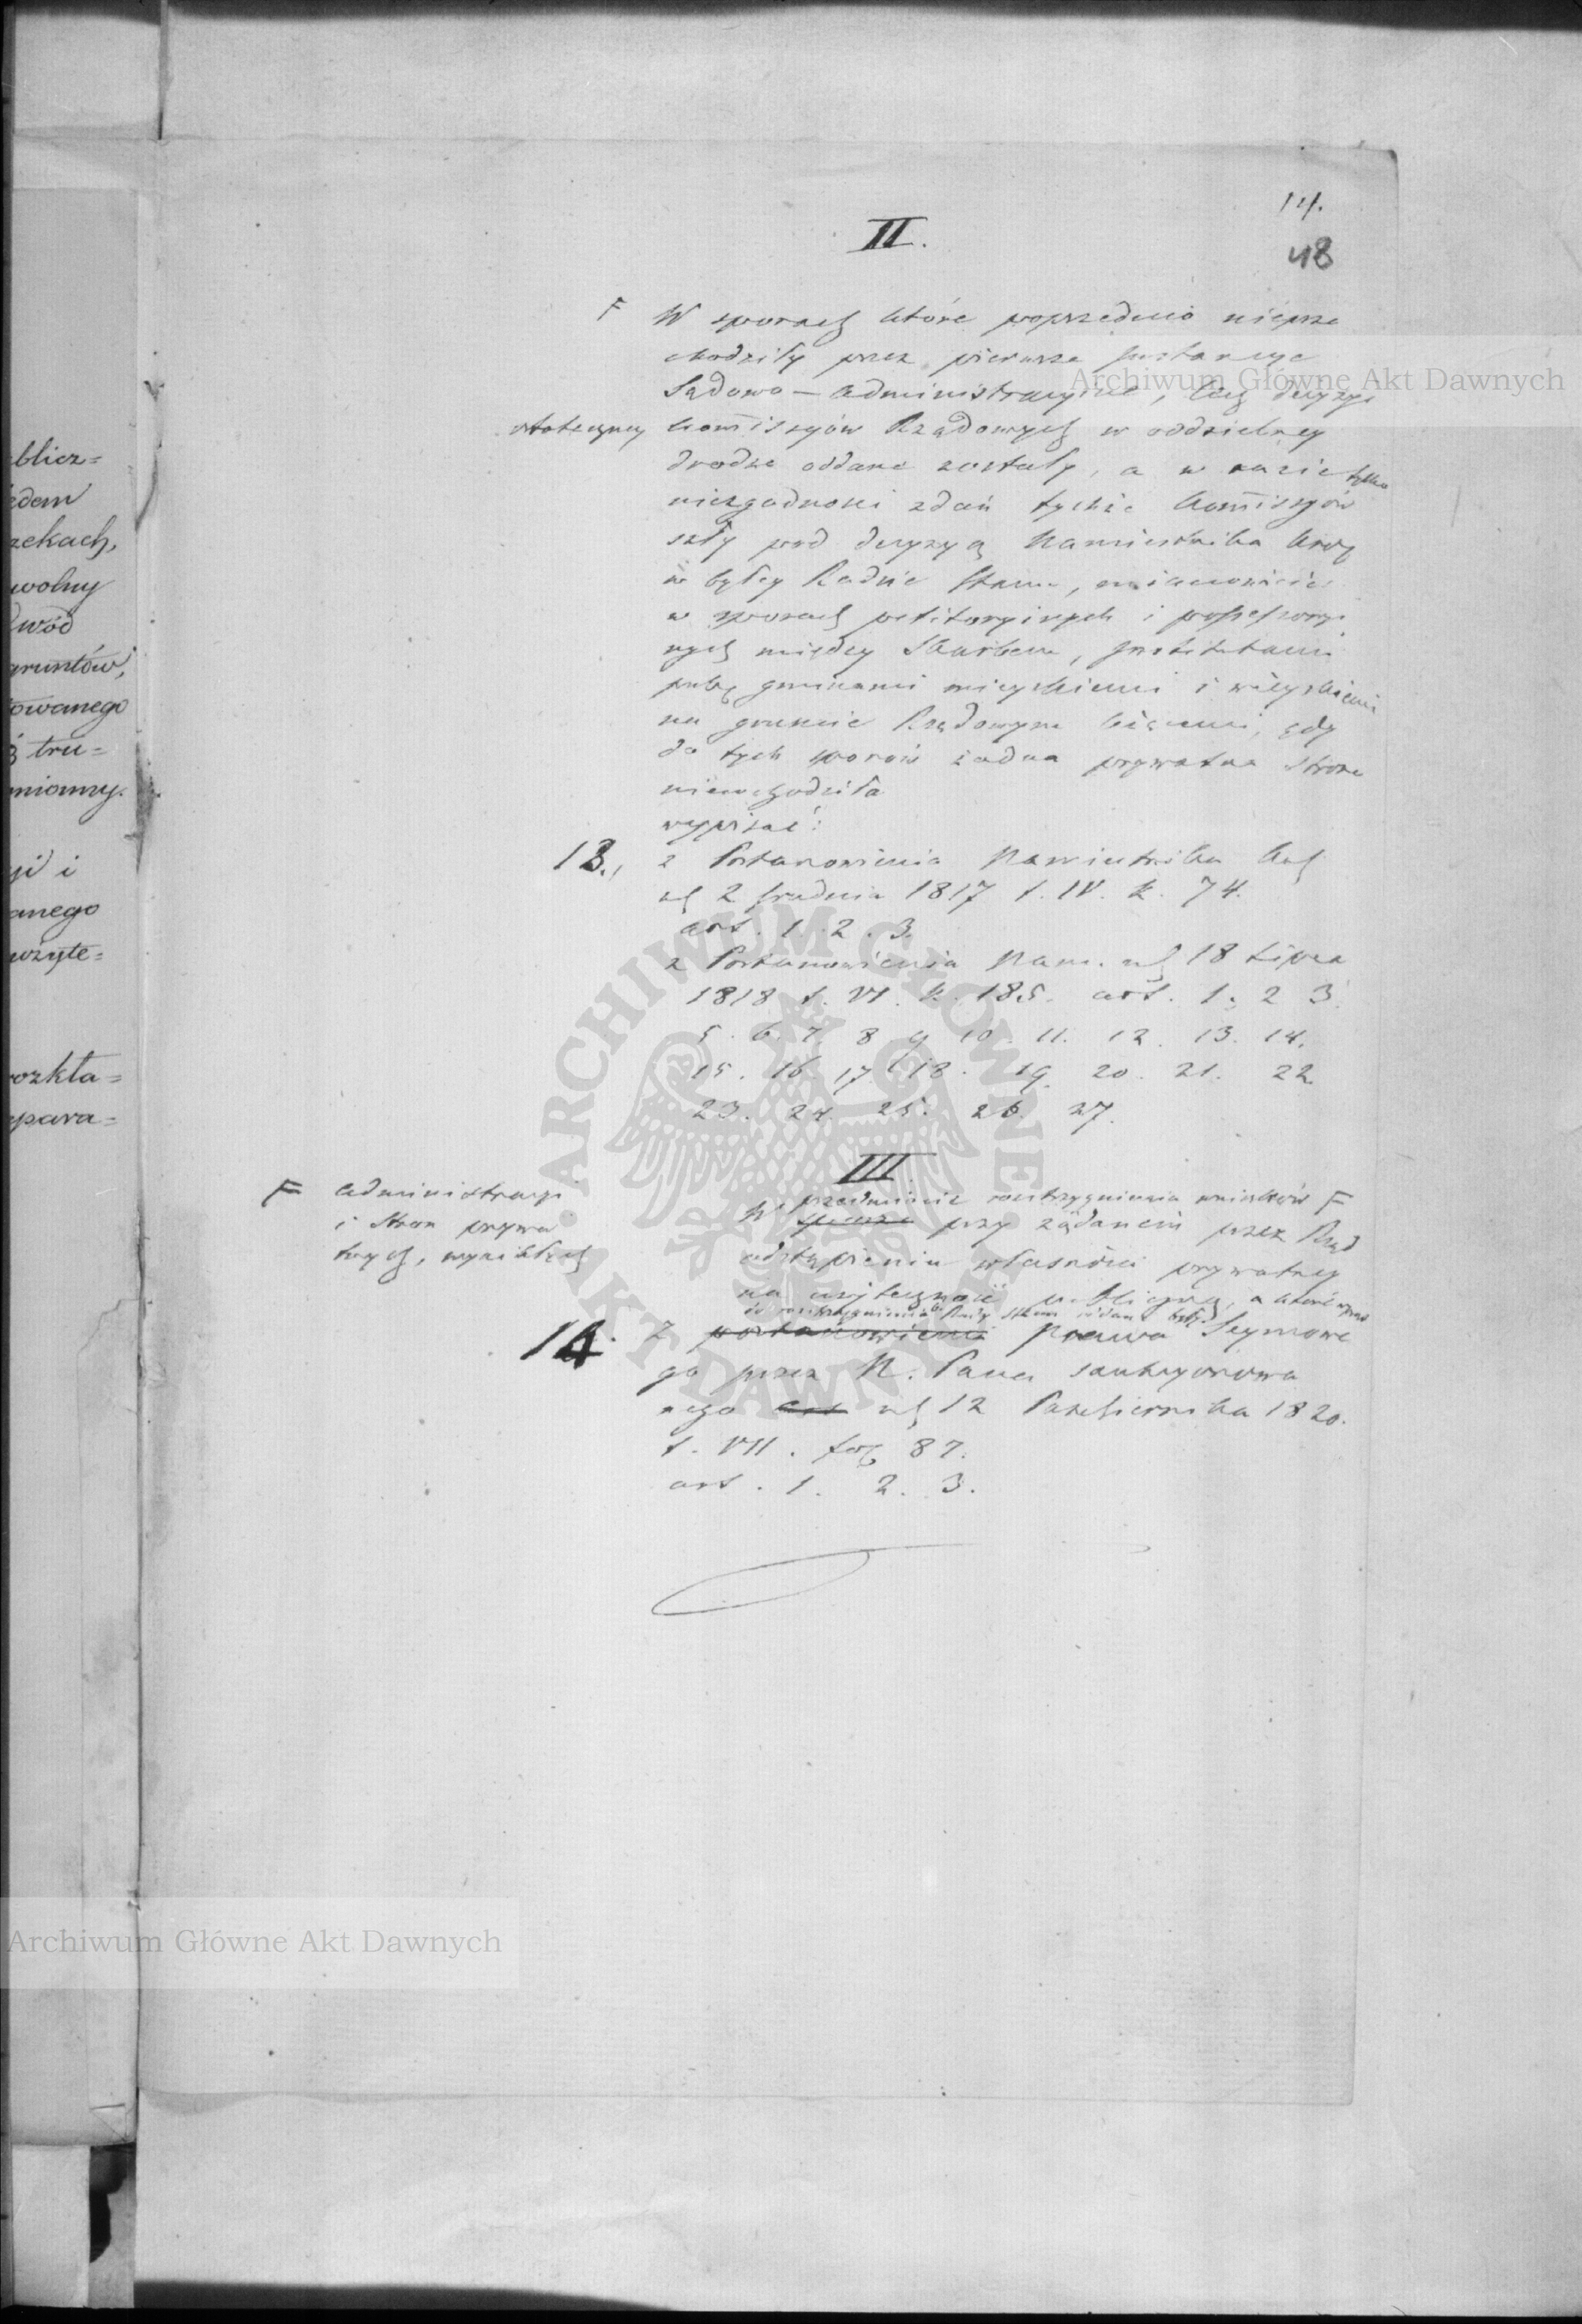 14.
48
II.
F W sporach które poprzednio nieprze
chodziły przez pierwsze Instancye
Sądowo - Administracyine, lecz decyzyi
ostateczney Kommissyów Rządowych w oddzielney
drodze oddane zostały, a w razie tylko
niezgodności zdań tychże Kommissyów
szły pod decyzyą Namiestnika Król
w byłey Radzie Stanu, mianowicie
w sporach petitoryinych i possessoryi
nych między Skarbem, Institutami
publ gminami mieyskiemi i wieyskiemi
na gruncie Rządowym leżącemi, gdy
do tych sporów żadna prywatna strona
niewchodziła
wypisać:
13., z Postanowienia Namiestnika Król
z d 2 Grudnia 1817 t. IV. k. 74.
art. 1. 2. 3.
z Postanowienia Nam. z d 18 Lipca
1818 t. VI. k. 185. art. 1. 2 3.
5. 6. 7. 8 9 10. 11. 12. 13. 14.
15. 16 17. 18. 19. 20. 21. 22.
23. 24. 25. 26. 27.
III.
F administracyi
i stron prywa
tnych, wynikłych
przedmiocie rozstrzygnienia wniosków F
W sporze przy żądaniu przez Rząd
odstąpieniu własności prywatney
na użyteczność publiczną, a które wprost
do rozstrzygnienia Rady Stanu oddane były
14. Z postanowienia Prawa Seymowe
go przez N. Pana sankcyonowa
nego art z d 12 Października 1820.
t. VII. fol 87.
art. 1. 2. 3.
blicz=
edem
zekach,
wolny
wód
gruntów,
owanego
tru=
miomy.
yi i
anego
użyte=
rozkła=
para=
Archiwum Główne Akt Dawnych
ARCHIWUM GŁÓWNE AKT DAWNYCH
Archiwum Główne Akt Dawnych